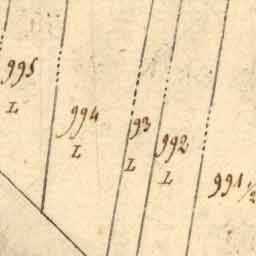 995
L
994
L
93
L
992
L
991 1/2